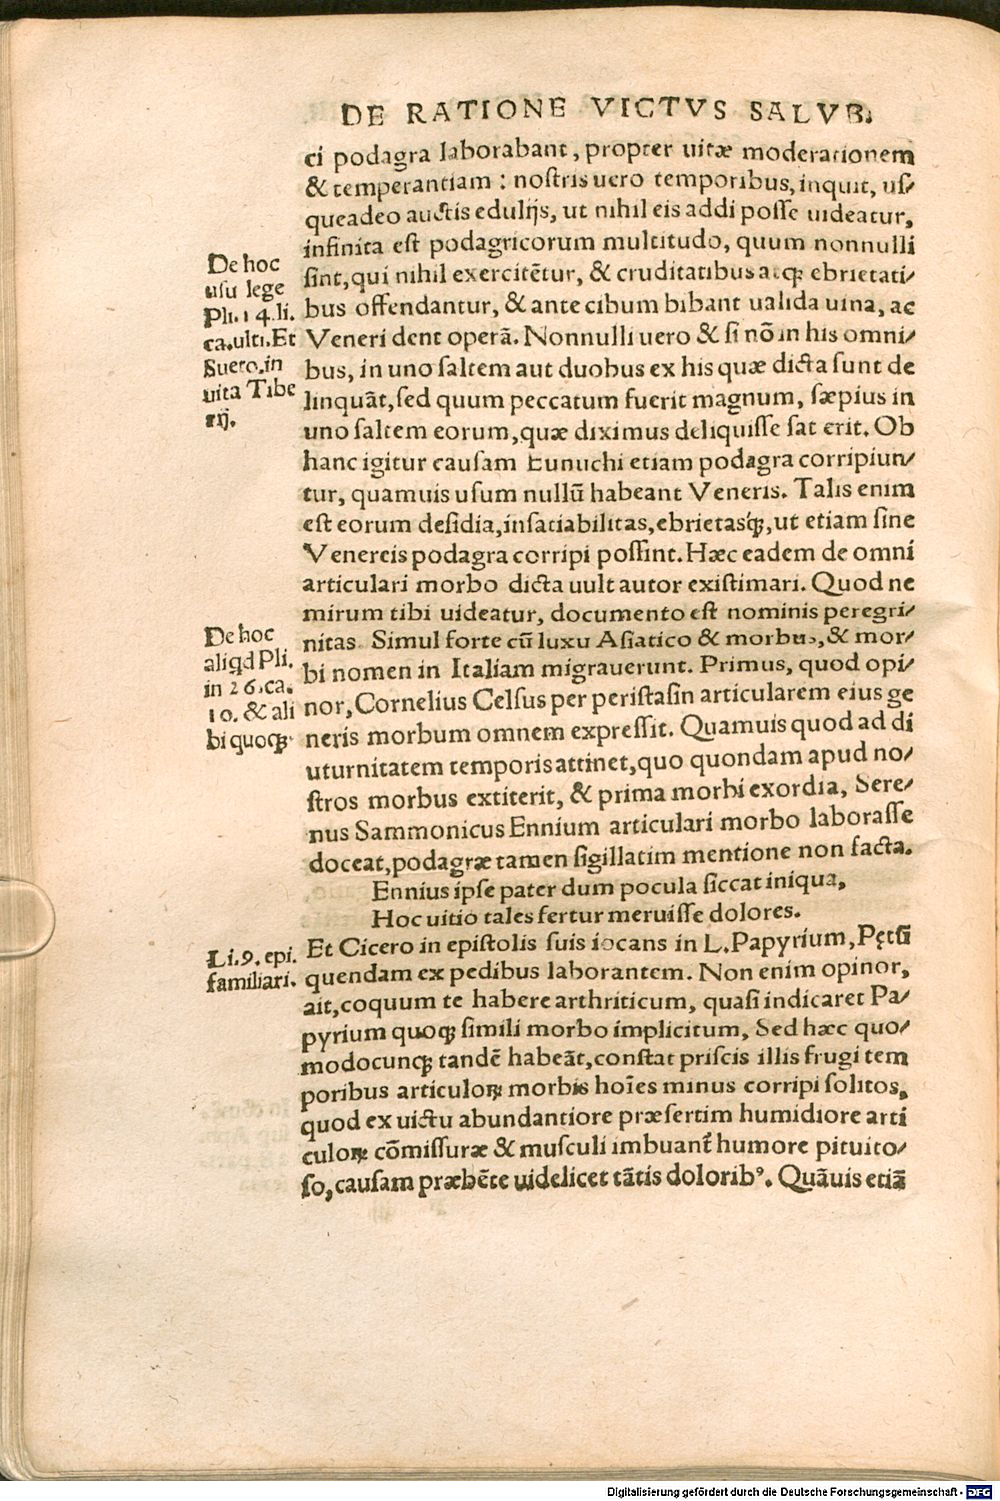 DE RATIONE VICTVS SALVB.
ci podagra laborabant, propter uitæ moderationem
& temperantiam : nostris uero temporibus, inquit, uſ/
queadeo auctis edulijs, ut nihil eis addi poſſe uideatur,
infinita eſt podagricorum multitudo, quum nonnulli
ſint, qui nihil exercitẽtur, & cruditatibus atq́; ebrietati/
bus offendantur, & ante cibum bibant ualida uina, ac
Veneri dent operã. Nonnulli uero & ſi nõ in his omni/
bus, in uno ſaltem aut duobus ex his quæ dicta ſunt de
linquãt, ſed quum peccatum fuerit magnum, ſæpius in
uno ſaltem eorum, quæ diximus deliquiſſe ſat erit. Ob
hanc igitur cauſam Eunuchi etiam podagra corripiun/
tur, quamuis uſum nullũ habeant Veneris. Talis enim
eſt eorum deſidia, inſatiabilitas, ebrietasq́;, ut etiam ſine
Venereis podagra corripi poſſint. Hæc eadem de omni
articulari morbo dicta uult autor exiſtimari. Quod ne
mirum tibi uideatur, documento eſt nominis peregri/
nitas. Simul forte cũ luxu Aſiatico & morbus, & mor/
bi nomen in Italiam migrauerunt. Primus, quod opi/
nor, Cornelius Celſus per periſtaſin articularem eius ge
neris morbum omnem expreſſit. Quamuis quod ad di
uturnitatem temporis attinet, quo quondam apud no/
ſtros morbus extiterit, & prima morbi exordia, Sere/
nus Sammonicus Ennium articulari morbo laboraſſe
doceat, podagræ tamen ſigillatim mentione non facta.
Ennius ipſe pater dum pocula ſiccat iniqua,
Hoc uitio tales fertur meruiſſe dolores.
Et Cicero in epiſtolis ſuis iocans in L. Papyrium, Pętſi
quendam ex pedibus laborantem. Non enim opinor,
ait, coquum te habere arthriticum, quaſi indicaret Pa/
pyrium quoq; ſimili morbo implicitum, Sed hæc quo/
modocunq; tandẽ habeãt, conſtat priſcis illis frugi tem
poribus articuloꝝ morbis hoĩes minus corripi ſolitos,
quod ex uictu abundantiore præſertim humidiore arti
culoꝝ cõmiſſuræ & muſculi imbuant̃ humore pituito/
ſo, cauſam præbẽte uidelicet tãtis doloribꝰ. Quãuis etiã
De hoc
uſu lege
Pli. 14. li.
ca. ulti. Et
Sueto. in
uita Tibe
rij.
De hoc
aliqd Pli.
in 26. ca.
10. & ali
bi quoq;
Li. 9. epi.
familiari.
Digitalisierung gefördert durch die Deutsche Forschungsgemeinschaft - DFG